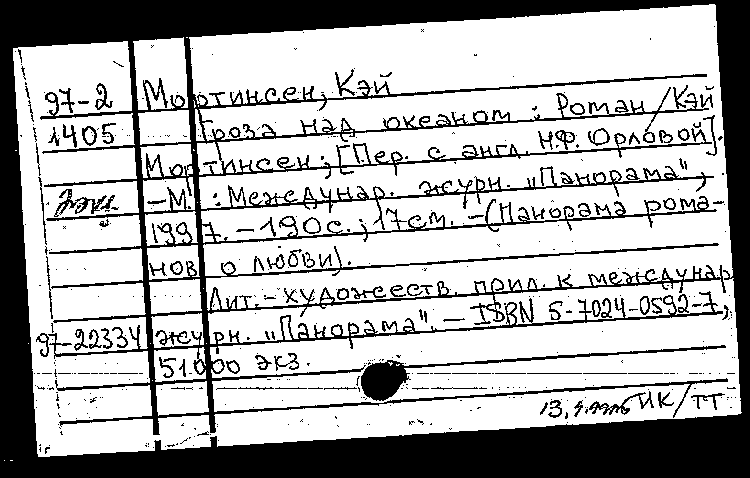 97-2 Мортинсен, Кэй
1405 Гроза над океаном : Роман / Кэй
Мортинсен; [Пер. с англ. Н.Ф. Орловой].
3экз. -М. : Междунар. журн. „Панорама",
1997. - 190с.; 17см. - (Панорама рома-
нов о любви).
Лит.-художеств. прил. к междунар
97-22334 журн. „Панорама". - ISBN 5-7024-0592-7,
51000 экз.
ИК/ТТ